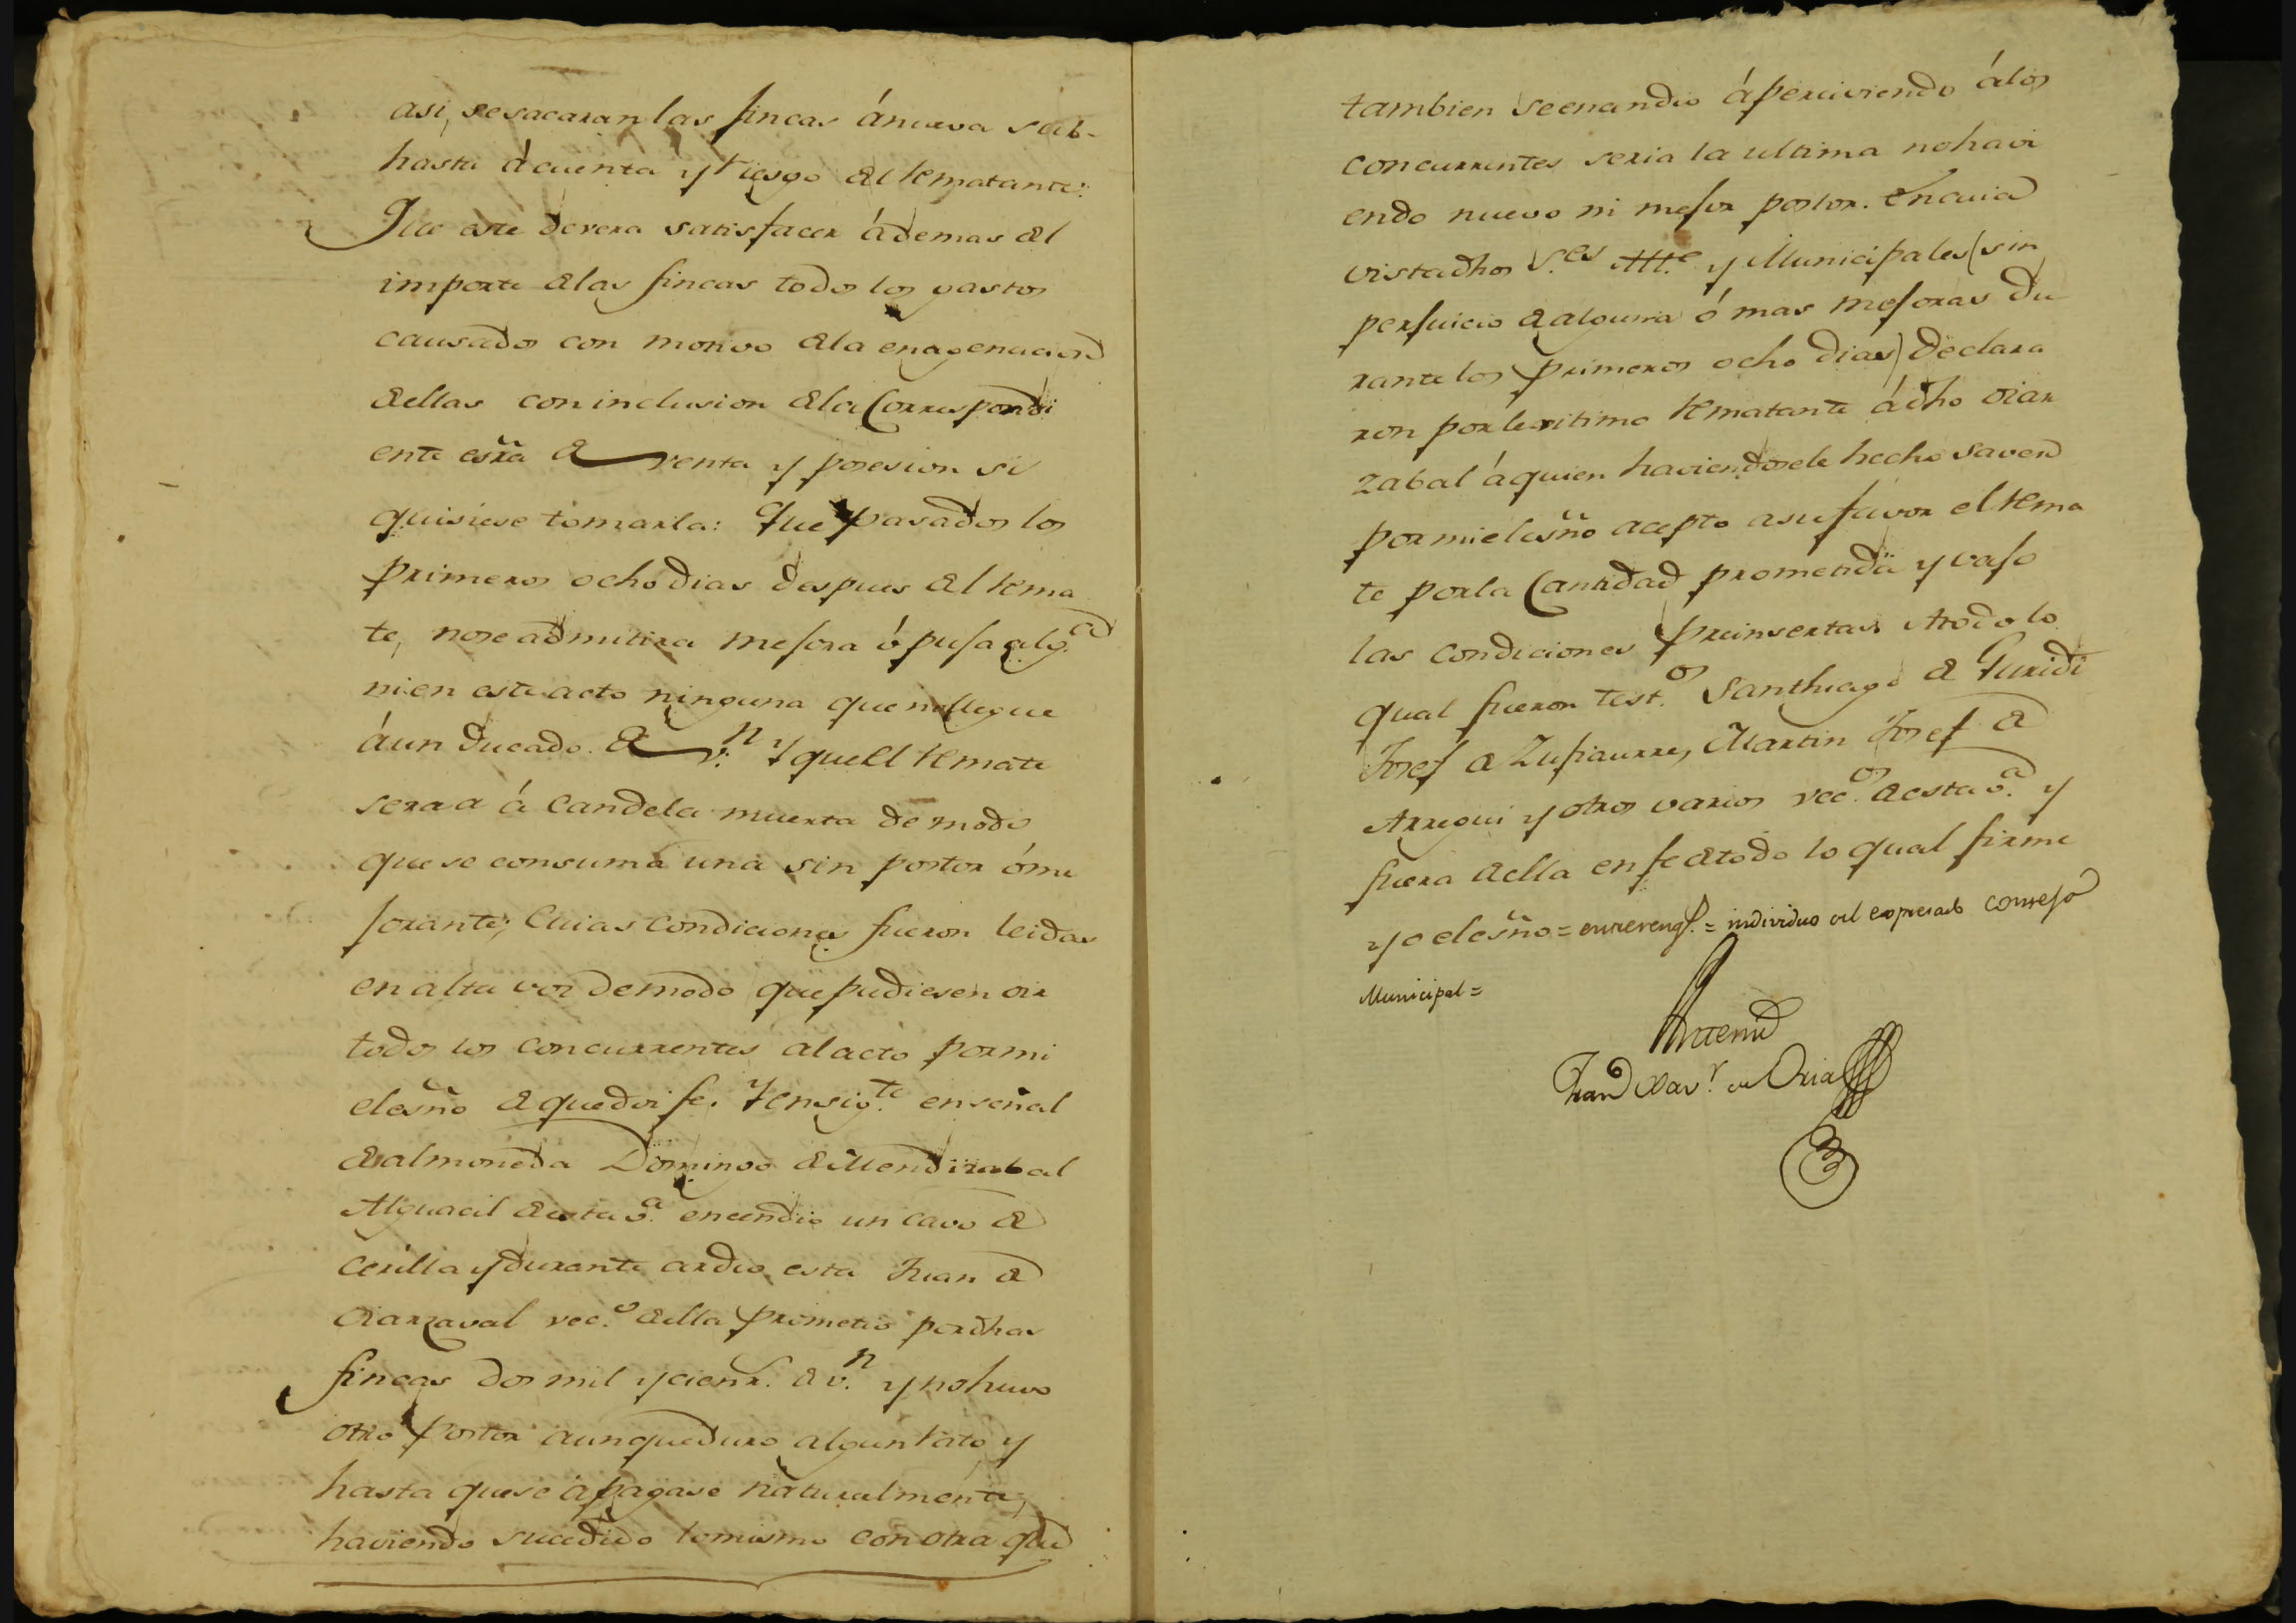 asi, sesacaran las fincas ánueva sub-
hasta ácuenta y riesgo del Rematante:
Que este devera satisfacer ádemas del
importe delas fincas todos los gastos
causados con motivo dela enagenacion
dellas coninclusion dela Correspondi
ente essra de venta y posesion si
quisiese tomarla: Que pasados los
primeros ochodias despues del Rema
te, nose admitira mejora ó puja alg.a
nien este acto ninguna que nollegue
áun Ducado de v.n Y que el Remate
seraa á Candela muerta de modo
que se consuma una sin postor óme
jorante; Cuias Condiciones fueron leidas
en alta voz demodo que pudiesen oir
todos los concurrentes al acto pormi
elesño de quedoi fe. Y ensig.te enseñal
de almoneda Domingo de Mendizabal
Alguacil de esta v.a encendio un cavo de
Cerilla y durante ardio esta Juan de
Oiarzaval vec.o della prometio pordhas
fincas dos mil y cien r. de v.n y nohuvo
otro Postor aunqueduro algun rato y
hasta quese apagase naturalmente,
haviendo sucedido lomismo con otra que
tambien seencendio áperciviendo álos
concurrentes seria la ultima nohavi
endo nuevo ni mejor postor. En cuia
vistadhos S.es Alt.e y Municipales (sin
perjuicio de alguna ó mas mejoras du
rante los primeros ocho dias) declara
ron porlexitimo Rematante ádho Oiar
zabal áquien haviendosele hecho saver
pormi elesño acepto asufavor el Rema
te porla Cantidad prometida y vajo
las condiciones preinsertas Atodo lo
qual fueron test.os Santhiago de Guridi
Josef de Zupiaurre, Martin Josef de
Arregui y otros varios vec.os de esta v.a y
fuera della enfe detodo lo qual firme
yo elesño = entrereng.s = individuo del expresado consejo
Municipal =
Antemi
Fran Xav.r de Oria